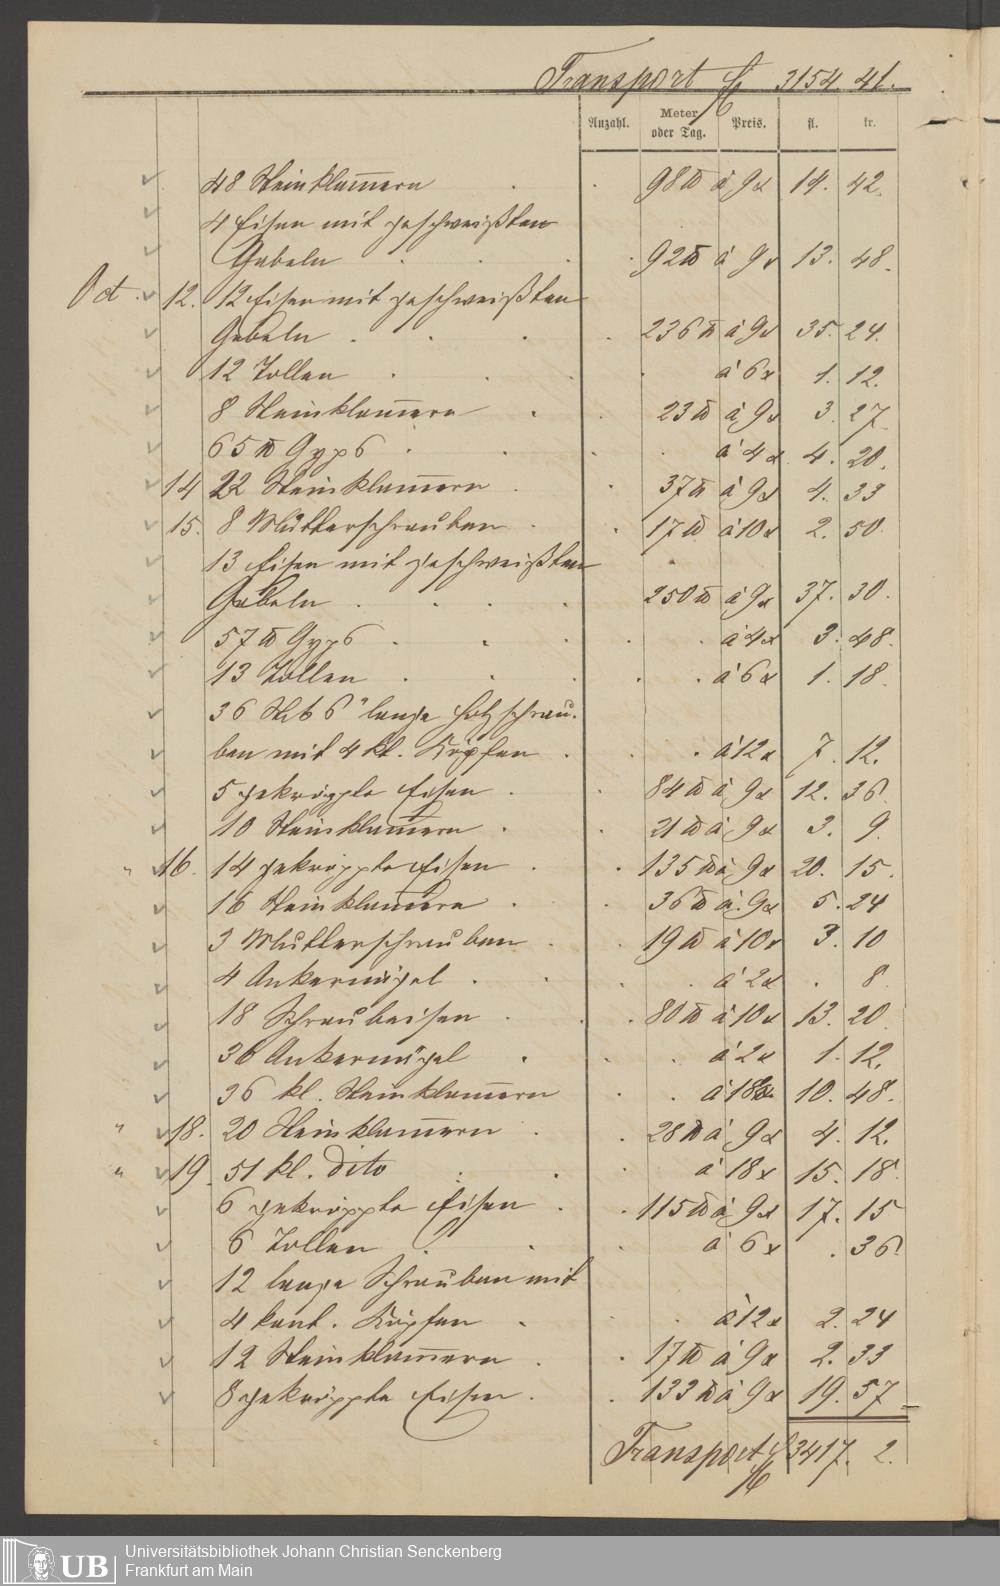 Transport fl 3154. 41.
Anzahl. Meter oder Tag. Preis. fl. kr.
48 Steinklam̄ern . . 98 ℔ à 9x 14. 42.
4 Eisen mit geschweißten
Gabeln . . . . 92 ℔ à 9x 13. 48.
Oct. 12. 12 Eisen mit geschweißten
Gabeln . . . . 236 ℔ à 9x 35. 24.
12 Dollen . . . . à 6x 1. 12.
8 Steinklam̄ern . . 23 ℔ à 9x 3. 27.
65 ℔ Gyps . . . . à 4x 4. 20.
14 22 Steinklam̄ern . . 37 ℔ à 9x 4. 33
15. 8 Mutterschrauben . . 17 ℔ à 10x 2. 50.
13 Eisen mit geschweißten
Gabeln . . . . 250 ℔ à 9x 37. 30.
57 ℔ Gyps . . . . . à 4x 3. 48.
13 Dollen . . . . . à 6x 1. 18.
36 Stck 6" lange Holzschrau-
ben mit 4 kt. Köpfen . . . à 12x 7. 12.
5 gekröppte Eisen . . 84 ℔ à 9x 12. 36.
10 Steinklam̄ern . . 21 ℔ à 9x 3. 9.
" 16. 14 gekröppte Eisen . . 135 ℔ à 9x 20. 15.
16 Steinklam̄ern . . 36 ℔ à 9x 5. 24
3 Mutterschrauben . . 19 ℔ à 10x 3. 10
4 Ankernägel . . . . à 2x . 8.
18 Schraubeisen . . . 80 ℔ à 10x 13. 20.
36 Ankernägel . . . à 2x 1. 12.
36 kl. Steinklam̄ern . . à 18x 10. 48.
" 18. 20 Steinklam̄ern . . 28 ℔ à 9x 4. 12.
" 19. 51 kl. dito . . . à 18x 15. 18.
6 gekröppte Eisen . . 115 ℔ à 9x 17. 15
6 Dollen . . . à 6x . 36.
12 lange Schrauben mit
4 kant. Köpfen . . . à 12x 2. 24
12 Steinklam̄ern . . 17 ℔ à 9x 2. 33
8 gekröppte Eisen . . 133 ℔ à 9x 19. 57
Transport fl 3417. 2.
UB Universitätsbibliothek Johann Christian Senckenberg
Frankfurt am Main